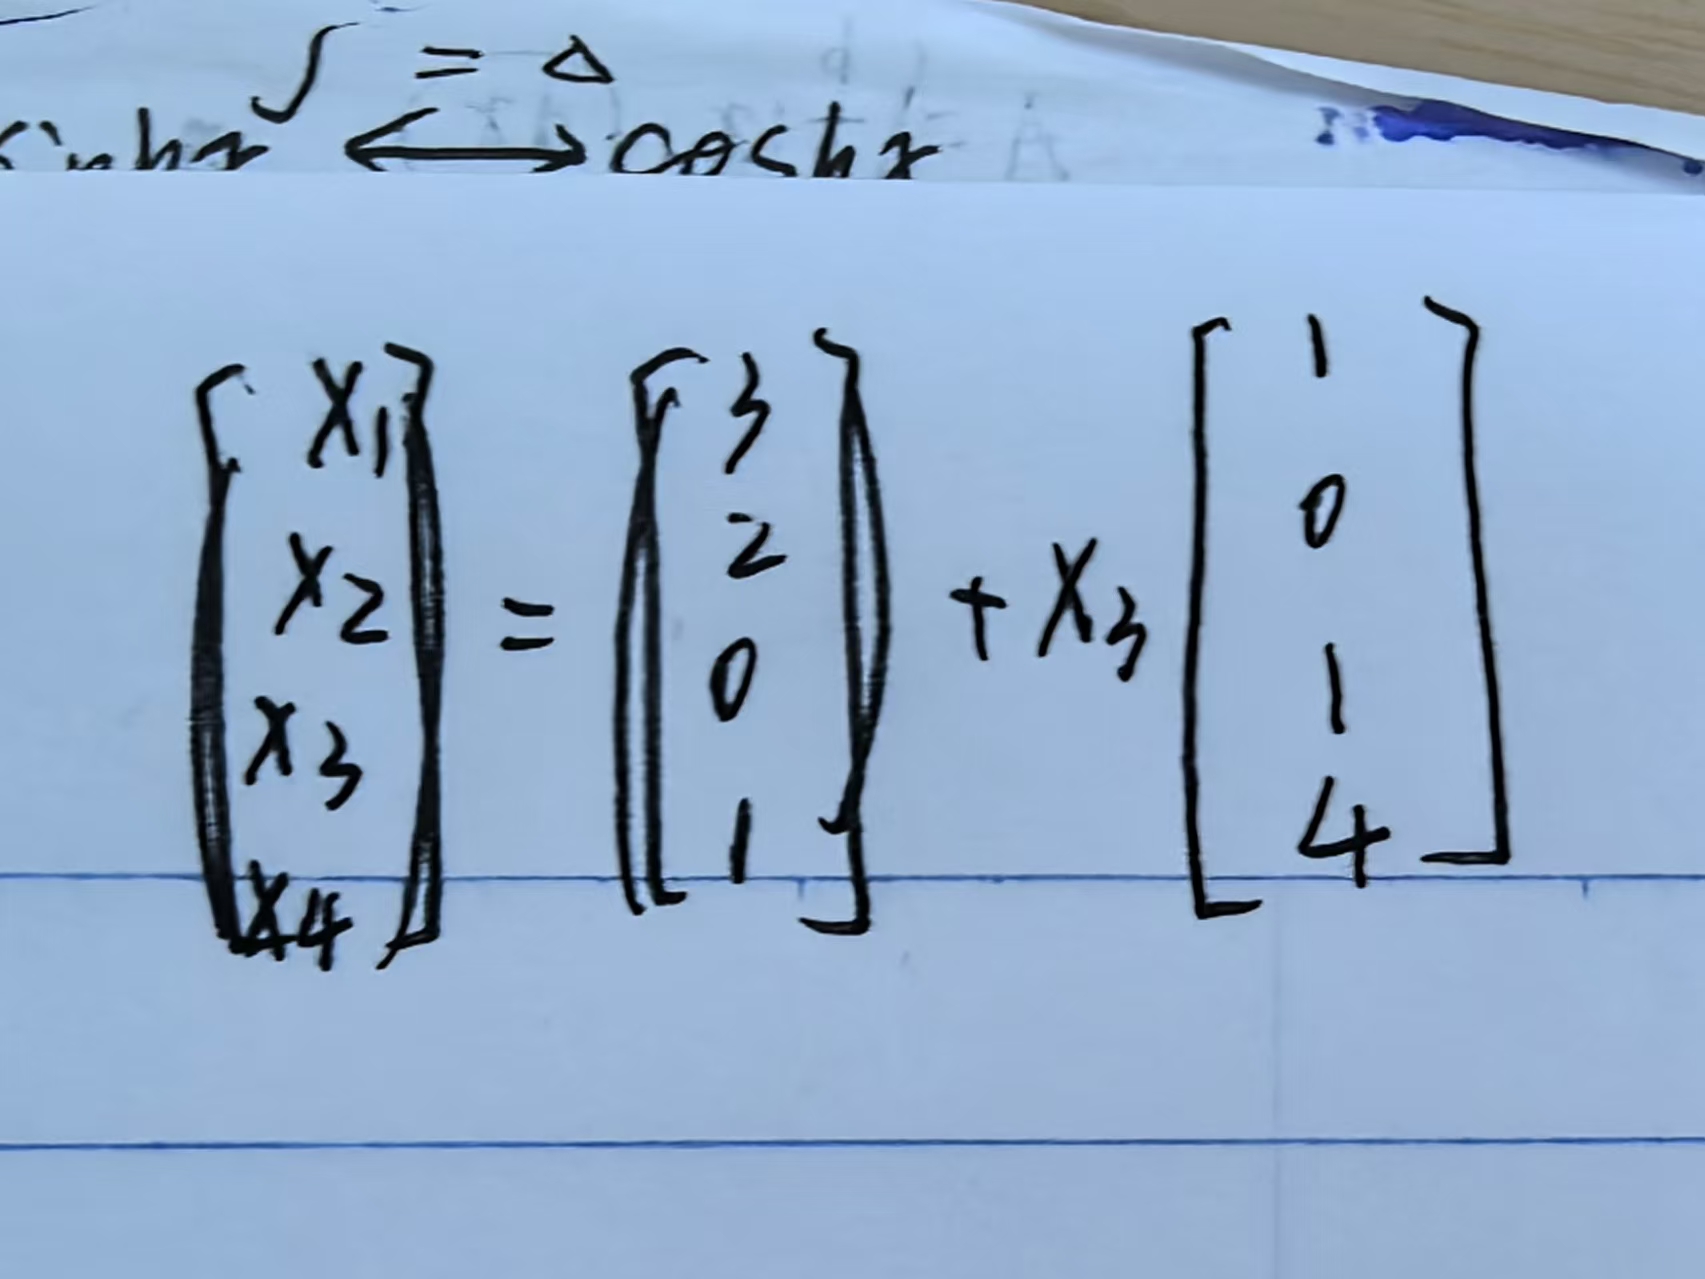 ∫ = Δ
sinhx ⟷ coshx
[x₁ x₂ x₃ x₄] = [3 2 0 1] + x₃ [1 0 1 4]